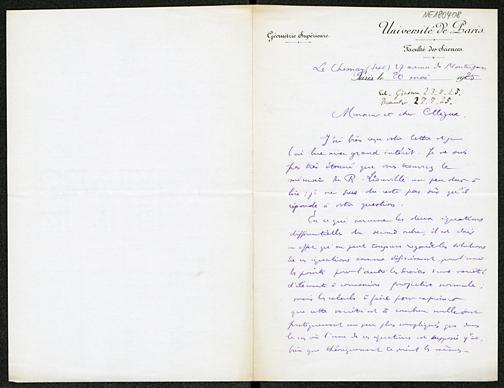 NE180408
Université de Paris
Géométrie Supérieure
Faculté des Sciences
Le Chesnay (S&O) 27 avenue de
Paris, le 20 mai 1925
23.5.25.
27.5.25.
Monsieur et cher Collègue,
J'ai bien reçu votre lettre et je
l'ai lue avec grand intérêt. Je ne suis
pas très étonné que vous trouviez le
mémoire de R. Liouville un peu dur à
lire; je ne suis du reste pas sûr qu'il
réponde à votre question.
En ce qui concerne les deux équations
différentielles du second ordre, il est clair
en effet qu'on peut toujours regarder les solutions
de ces équations comme définissant, pour l'une
les points, pour l'autre les droites d'une variété
d'éléments à connexion projective normale;
mais les calculs à faire pour exprimer
que cette variété est à courbure nulle sont
pratiquement un peu plus compliqués que dans
le cas où l'une de ces équations est supposée y''=0,
bien que théoriquement ce soient les mêmes.